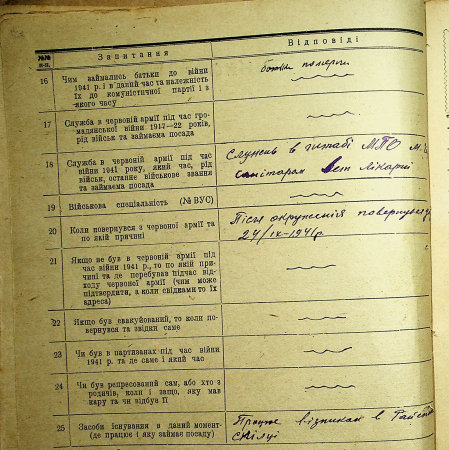 №№
п.п.
Запитання
Відповіді
16
Чим займались батьки до війни
1941 р. і в даний час та належність
їх до комуністичної партії і з
якого часу
батьки померли
17
Служба в червоній армії під час гро-
мадянської війни 1917—22 років,
рід військ та займаєма посада
18
Служба в червоній армії під час
війни 1941 року, який час, рід
військ, останнє військове звання
та займаєма посада
Служив в штабі МПО м.
санітаром вет лікарні
19
Військова спеціальність (№ ВУС)
20
Коли повернувся з червоної армії та
по якій причині
Після окруженія повернувся
24/IX-1941р.
21
Якщо не був в червоній армії під
час війни 1941 р., то по якій при-
чині та де перебував підчас від-
ходу червоної армії (чим може
підтвердити, а коли свідками то їх
адреса)
22
Якщо був евакуйований, то коли по-
вернувся та звідки саме
23
Чи був в партизанах під час війни
1941 р. та де саме і який час
24
Чи був репресований сам, або хто з
родичів, коли і защо, яку мав
кару та чи відбув її
25
Засоби існування в даний момент-
(де працює і яку займає посаду)
Працює візником в
спілці